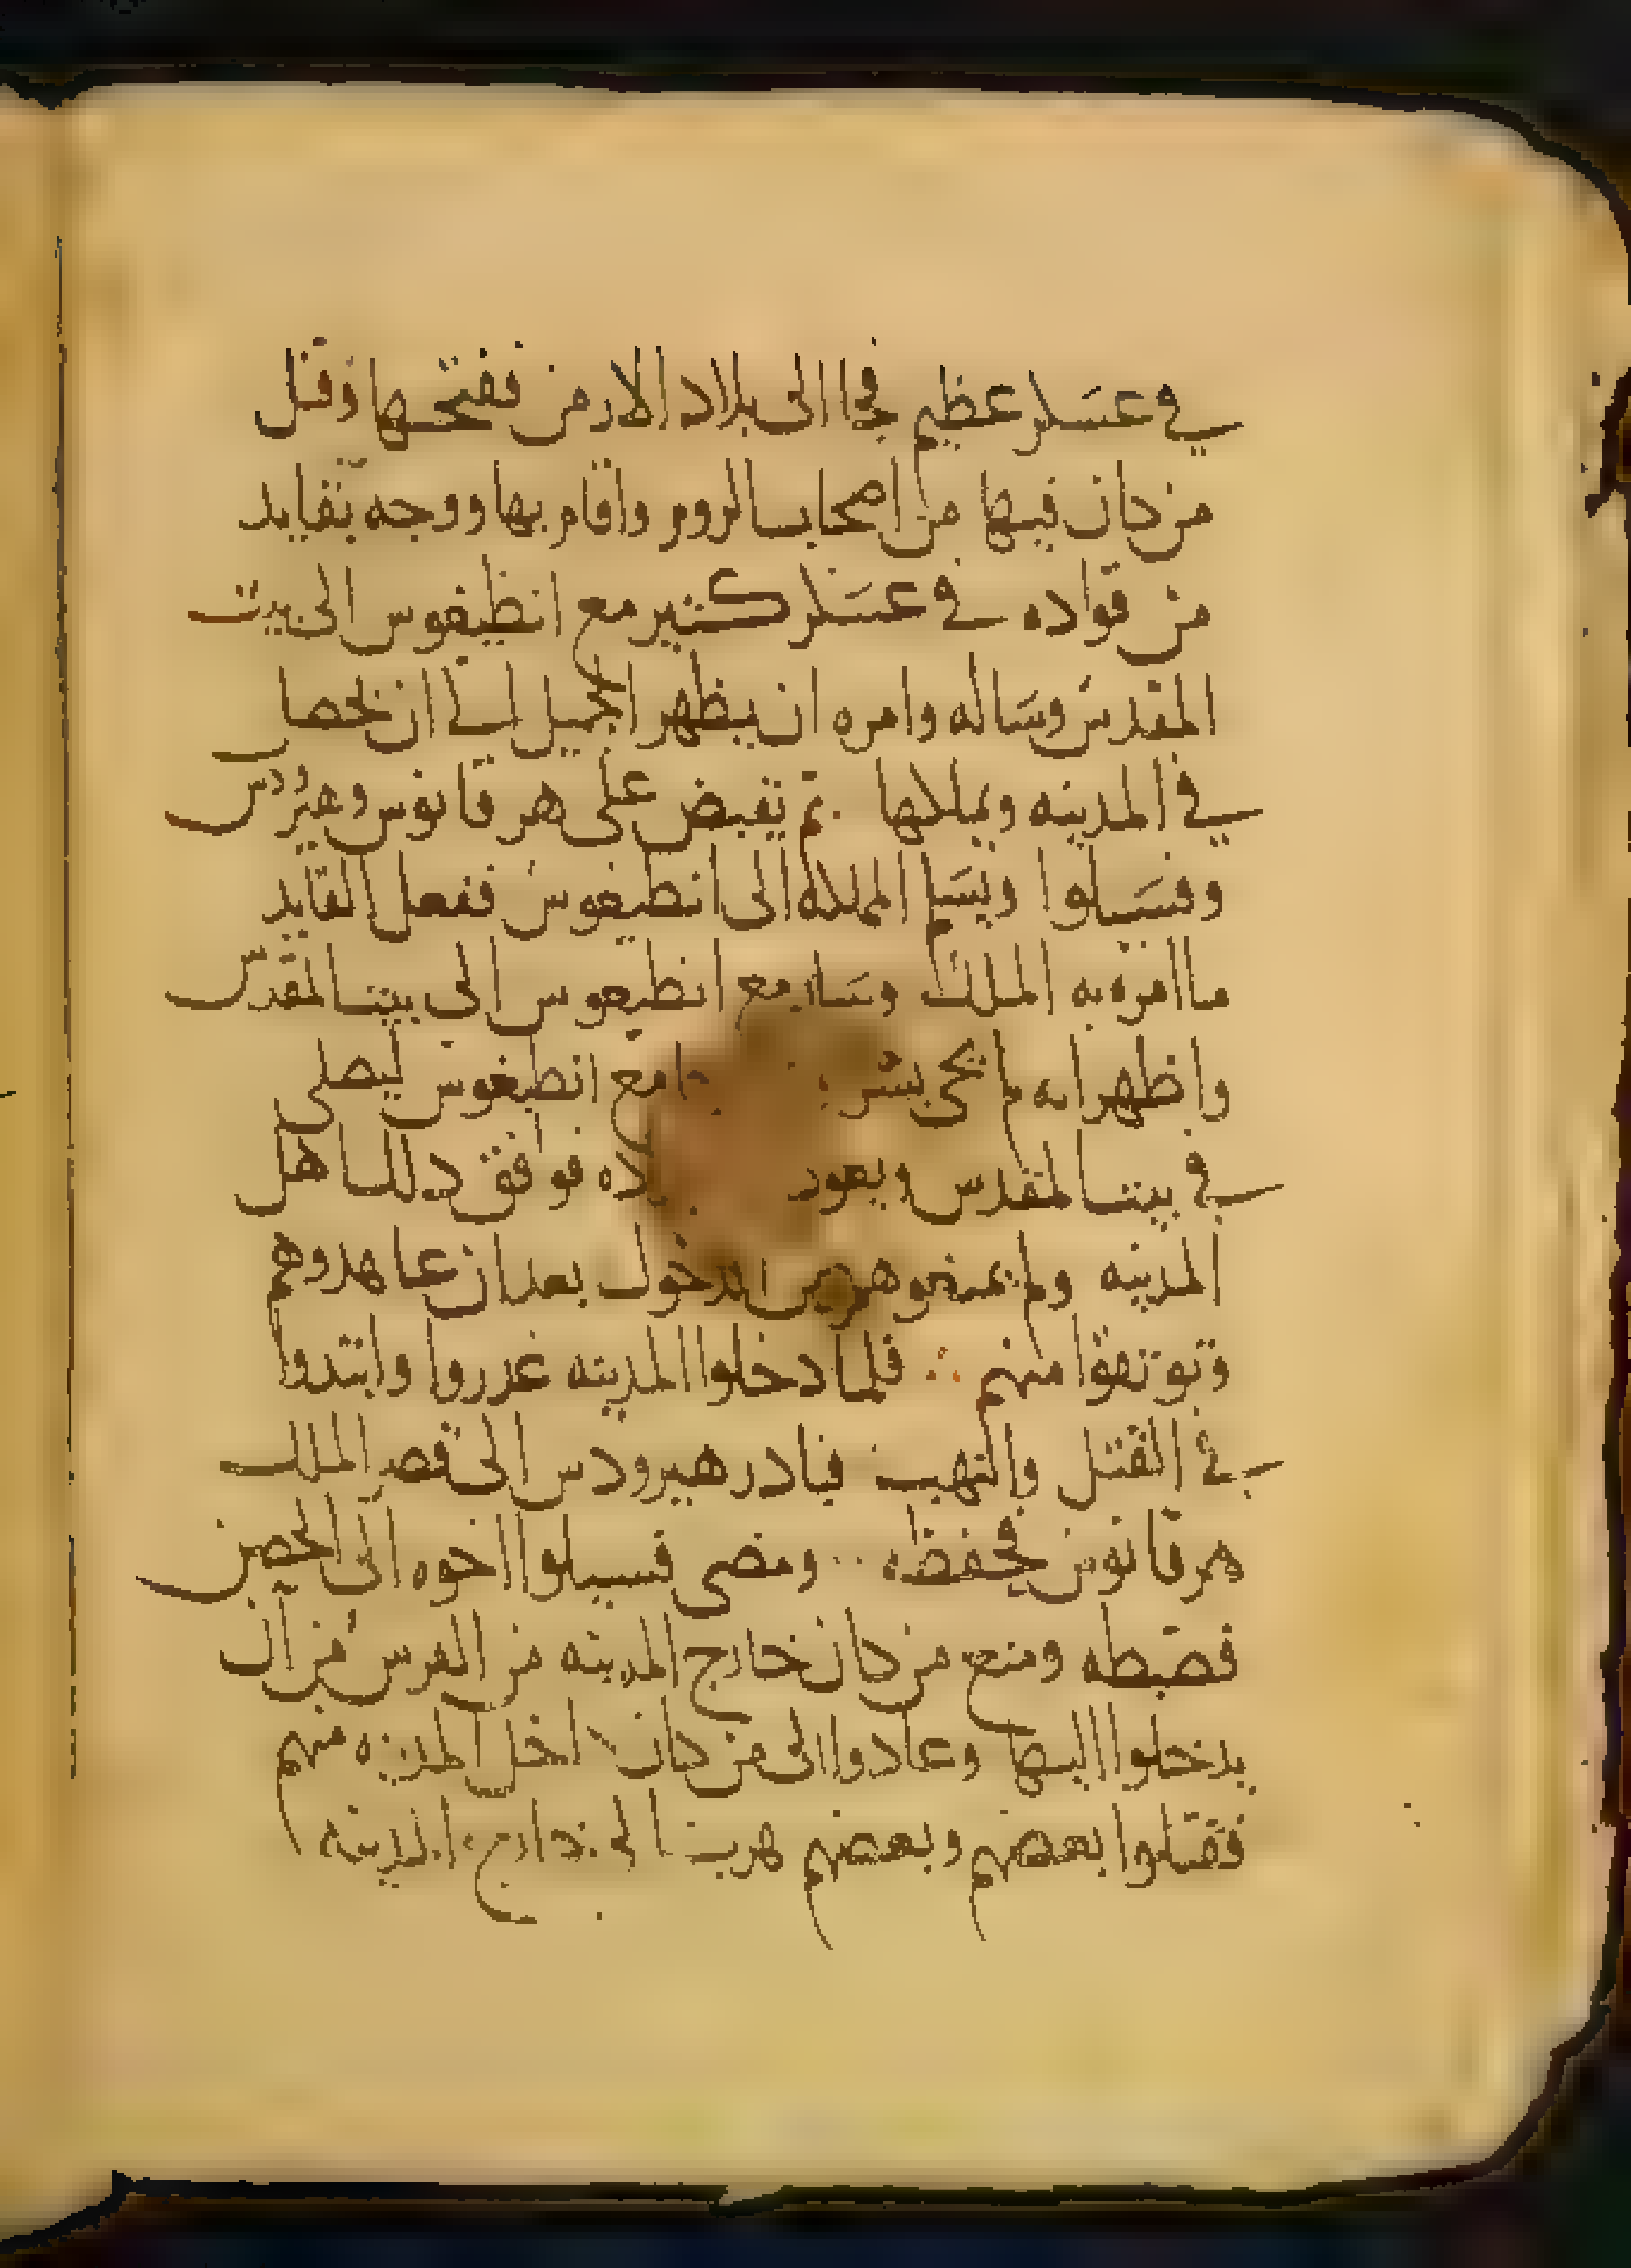 في عسكر عظيم فجا الى بلاد الارمن ففتحها وقتل
من كان فيها من اصحاب الروم واقام بها ووجه بقايد
من قواده في عسكر كثير مع انطيغوس الى بيت
المقدس وساله وامره ان يظهر الجميل الى ان يحصل
في المدينه ويملكها ثم يقبض على هرقانوس وهيرودس
وفسيلوا ويسلم المملكه الى انطيغوس ففعل القايد
ما امره به الملك وسار مع انطيغوس الى بيت المقدس
واظهر انه لم يجى بشر جا مع انطيغوس ليصلى
في بيت المقدس ويعود فوافق ذلك اهل
المدينه ولم يمنعوهم من الدخول بعد ان عاهدوهم
وتوثقوا منهم ∴ فلما دخلوا المدينه غدروا وابتدوا
في القتل والنهب فبادر هيرودس الى قصر الملك
هرقانوس فحفظه ∴ ومضى فسيلوا اخوه الى الحصن
فضبطه ومنع من كان خارج المدينه من الفرس من ان
يدخلوا اليها وعادوا الى من كان داخل المدينه منهم
فقتلوا بعضهم وبعضهم هرب الى خارج المدينه